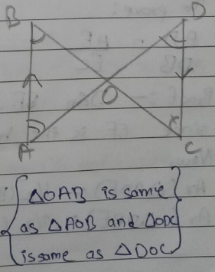 B
D
O
A
C
△OAB is same
as △AOB and △ODC
is same as △DOC